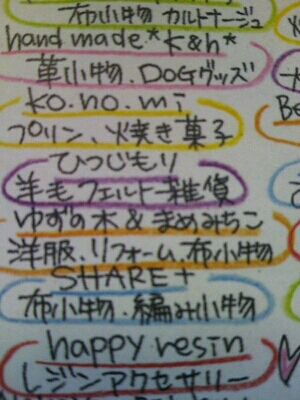 布小物 カルトナージュ
hand made*k&h*
革小物.DOGグッズ
ko.no.mi
プリン、焼き菓子
ひつじもり
羊毛フェルト雑貨
ゆずの木&まめみちこ
洋服.リフォーム.布小物
SHARE+
布小物.編み小物
happy resin
レジンアクセサリー